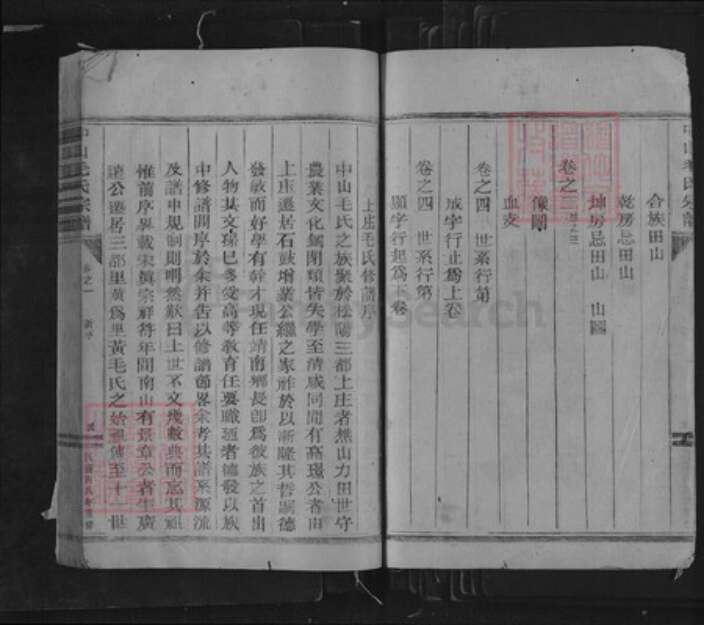 合族田山
乾房忌田山
坤房忌田山 山圖
卷之三
像圖
血支
卷之四 世系行第
成字行止爲上卷
卷之四 世系行第
顯字行起爲下卷
上庄毛氏修譜序
中山毛氏之族聚於松陽三都上庄者樵山力田世守
農業文化錮閉類皆失學至清咸同間有高環公者由
上庄遷居石鼓增業公繼之家雖於以漸隆其哲嗣德
發敏而好學有幹才現任靖南鄉長卽爲彼族之首出
人物其文孫已多受高等教育任要職逎者德發以族
中修譜問序於余幷告以修譜節畧余考其譜系源流
及譜中規制則明然歎曰上世不文幾數典而忘其祖
惟前序畢載宋眞宗祥符年間南山有景章公者生廣
達公遷居三都里黃爲里黃毛氏之始祖傳至十一世
中山毛氏宗譜
卷之一